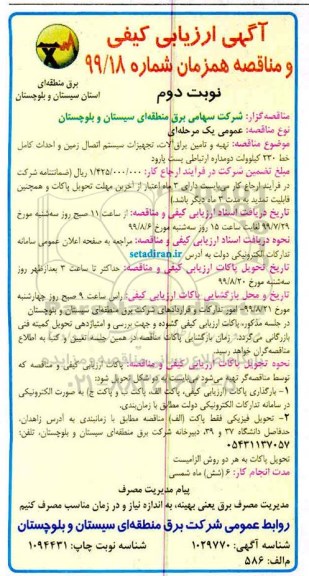 آگهی ارزیابی کیفی
و مناقصه همزمان شماره ۹۹/۱۸
نوبت دوم
برق منطقه‌ای
استان سیستان و بلوچستان
مناقصه‌گزار: شرکت سهامی برق منطقه‌ای سیستان و بلوچستان
نوع مناقصه: عمومی یک مرحله‌ای
موضوع مناقصه: تهیه و تامین یراق‌آلات، تجهیزات سیستم اتصال زمین و احداث کامل
خط ۲۳۰ کیلوولت دومداره ارتباطی پست پارود
مبلغ تضمین شرکت در فرآیند ارجاع کار: ۱/۴۲۵/۰۰۰/۰۰۰ ریال (ضمانتنامه شرکت
در فرآیند ارجاع کار می‌بایست دارای ۳ ماه اعتبار از آخرین مهلت تحویل پاکات و همچنین
قابلیت تمدید به مدت ۳ ماه دیگر باشد.)
تاریخ دریافت اسناد ارزیابی کیفی و مناقصه: از ساعت ۱۱ صبح روز سه‌شنبه مورخ
۹۹/۷/۲۹ لغایت ساعت ۱۵ روز سه‌شنبه مورخ ۹۹/۸/۶
نحوه دریافت اسناد ارزیابی کیفی و مناقصه: مراجعه به صفحه اعلان عمومی سامانه
تدارکات الکترونیکی دولت به آدرس setadiran.ir
تاریخ تحویل پاکات ارزیابی کیفی و مناقصه: حداکثر تا ساعت ۳ بعدازظهر روز
سه‌شنبه مورخ ۹۹/۸/۲۰
تاریخ و محل بازگشایی پاکات ارزیابی کیفی: راس ساعت ۹ صبح روز چهارشنبه
مورخ ۹۹/۸/۲۱- امور تدارکات و قراردادهای شرکت برق منطقه‌ای سیستان و بلوچستان
در جلسه مذکور، پاکات ارزیابی کیفی گشوده و جهت بررسی و امتیازدهی تحویل کمیته فنی
بازرگانی می‌گردد. زمان بازگشایی پاکات مناقصه در همین جلسه تعیین و کتبا به اطلاع
مناقصه‌گران خواهد رسید.
نحوه تحویل پاکات ارزیابی کیفی و مناقصه: پاکات ارزیابی کیفی و مناقصه که
توسط مناقصه‌گر تهیه می‌شود می‌بایست به دو شکل تحویل شود:
۱- بارگذاری پاکات (ارزیابی کیفی، پاکت الف، پاکت ب و پاکت ج) به صورت الکترونیکی
در سامانه تدارکات الکترونیکی دولت مطابق با زمان‌بندی.
۲- تحویل فیزیکی فقط پاکت (الف) مناقصه مطابق با زمانبندی به آدرس زاهدان،
حدفاصل دانشگاه ۳۷ و ۳۹، دبیرخانه شرکت برق منطقه‌ای سیستان و بلوچستان، تلفن:
۰۵۴۳۱۱۳۷۰۵۷
تحویل پاکات به هر دو روش الزامیست
مدت انجام کار: ۶ (شش) ماه شمسی
پیام مدیریت مصرف
مدیریت مصرف برق یعنی بهینه، به اندازه نیاز و در زمان مناسب مصرف کنیم
روابط عمومی شرکت برق منطقه‌ای سیستان و بلوچستان
شناسه آگهی: ۱۰۲۹۷۷۰
شناسه نوبت چاپ: ۱۰۹۴۴۳۱
م‌الف: ۵۸۶